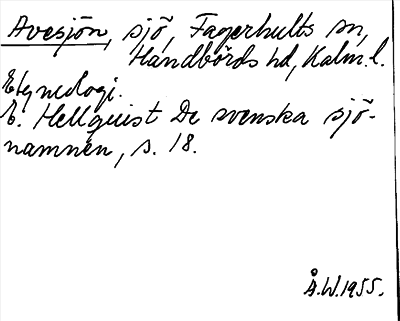 Avesjön, sjö, Fagerhults sn,
Handbörds hd, Kalm. l.
Etymologi.
E. Hellquist De svenska sjö-
namnen, s. 18.
Å.W. 1955.